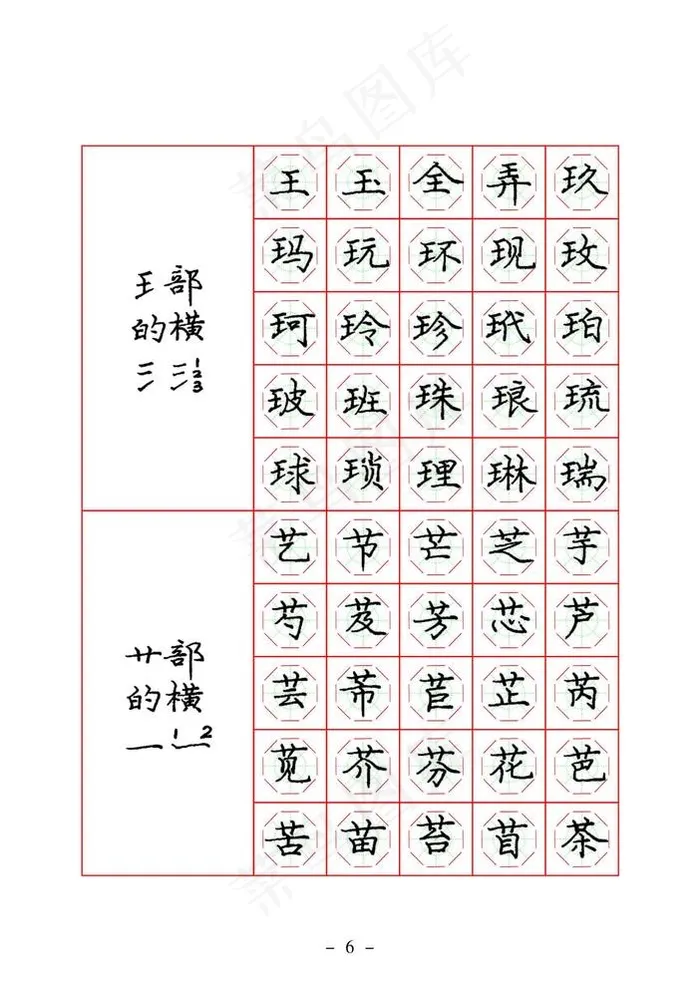 王部
的横
123
王玉全弄玖
玛玩环现玫
珂玲珍玳珀
玻班珠琅琉
球琐理琳瑞
艹部
的横
1 2
艺节芒芝芋
芍芨芳芯芦
芸芾苣芷芮
苋芥芬花芭
苦苗苔苜茶
- 6 -
菜鸟图库